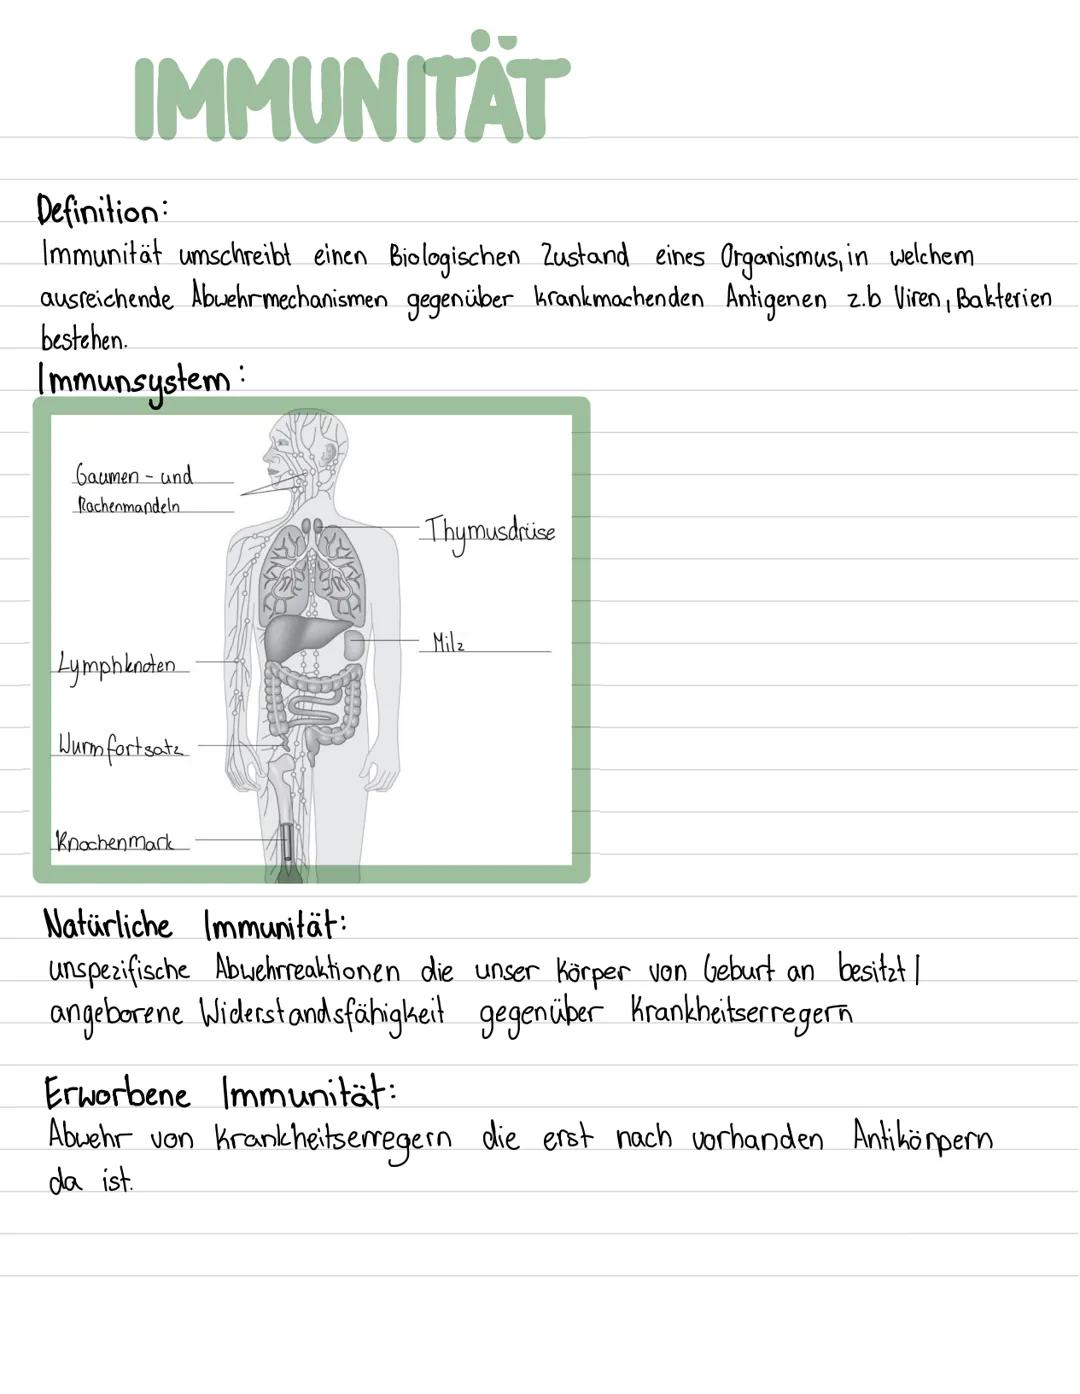 IMMUNITÄT
Definition:
Immunität umschreibt einen Biologischen Zustand eines Organismus, in welchem
ausreichende Abwehrmechanismen gegenüber krankmachenden Antigenen z.b Viren, Bakterien
bestehen.
Immunsystem:
Gaumen- und
Rachenmandeln
Thymusdrüse
Milz
Lymphknoten
Wurmfortsatz
Knochenmark
Natürliche Immunität:
unspezifische Abwehrreaktionen die unser Körper von Geburt an besitzt |
angeborene Widerstandsfähigkeit gegenüber Krankheitserregern
Erworbene Immunität:
Abwehr von Krankheitserregern die erst nach vorhanden Antikörpern
da ist.